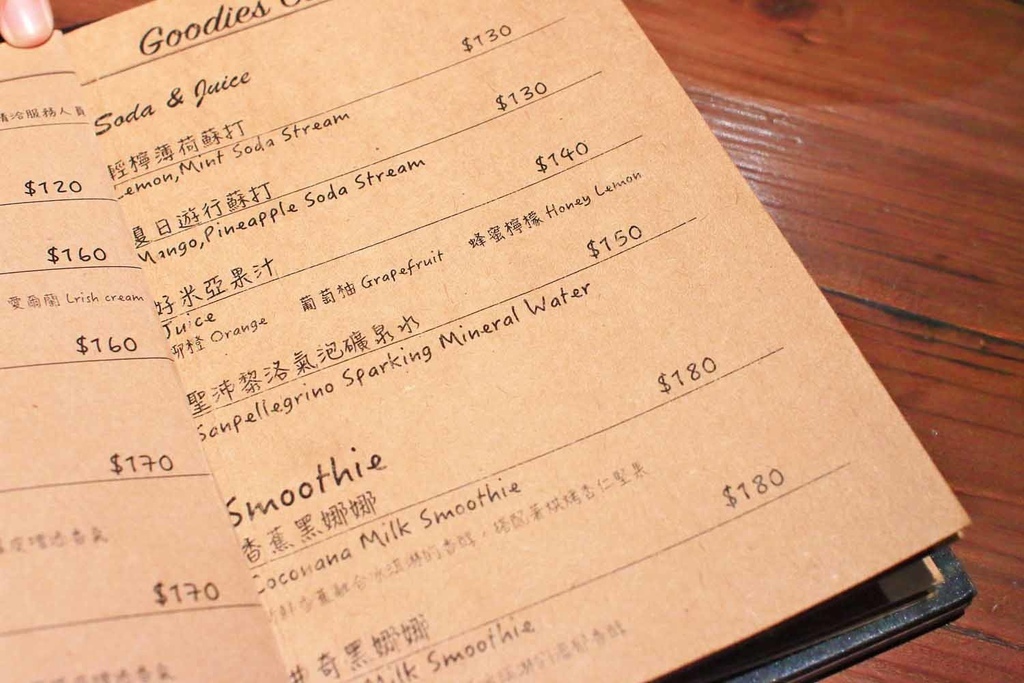 請洽服務人員
$120
$160
愛爾蘭 Lrish cream
$160
$170
$170
Goodies
Soda & Juice
輕檸薄荷蘇打 $130
Lemon,Mint Soda Stream
夏日遊行蘇打 $130
Mango,Pineapple Soda Stream
好米亞果汁 $140
Juice
柳橙 Orange 葡萄柚 Grapefruit 蜂蜜檸檬 Honey Lemon
聖沛黎洛氣泡礦泉水 $150
Sanpellegrino Sparking Mineral Water
Smoothie
香蕉黑娜娜 $180
Coconana Milk Smoothie
奇黑娜娜 $180
Milk Smoothie